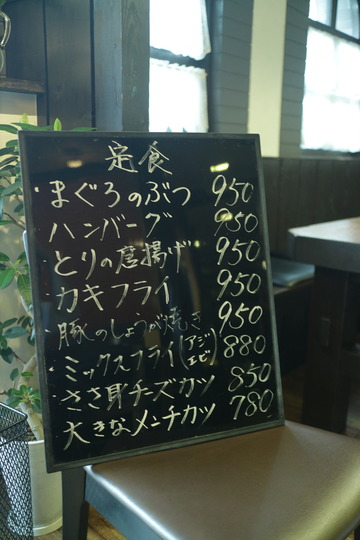 定食
・まぐろのぶつ 950
ハンバーグ 950
・とりの唐揚げ 950
カキフライ 950
・豚のしょうが焼き 950
・ミックスフライ(アジ エビ) 880
ささ身チーズカツ 850
大きなメンチカツ 780